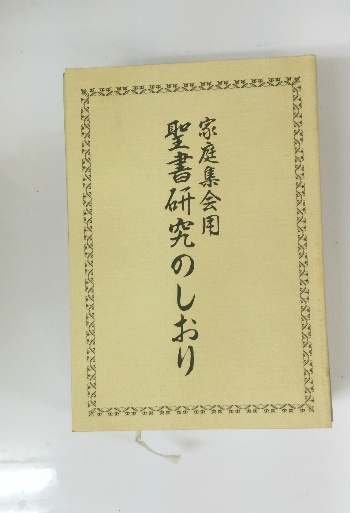 家庭集会用
聖書研究のしおり